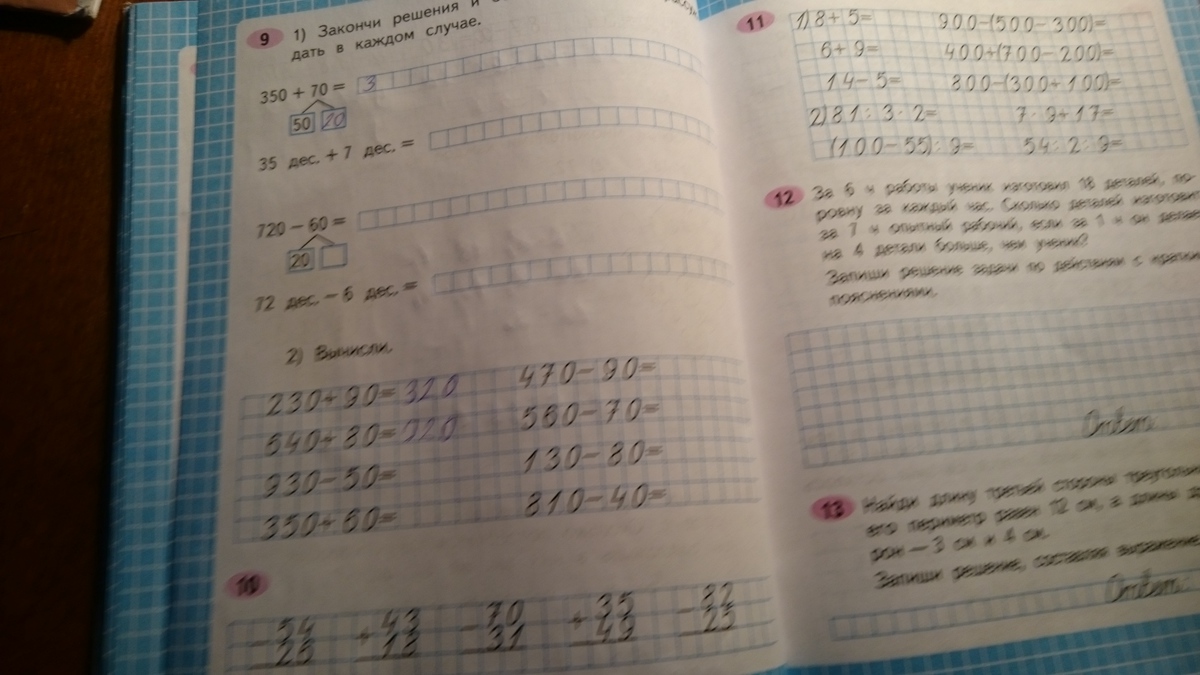 9 1) Закончи решения и
дать в каждом случае.
350 + 70 = 3
50 20
35 дес. + 7 дес. =
720 − 60 =
20
72 дес. − 6 дес. =
2) Вычисли.
230+90=320 470−90=
540+80= 560−70=
930−50= 130−80=
350+60= 810−40=
10
− 54 + 43 − 70 + 35 − 32
25 18 31 49 23
11 1) 8+5= 900−(500−300)=
6+9= 400+(700−200)=
14−5= 800−(300+100)=
2) 81:3·2= 7·9+17=
(100−55):9= 54:2:9=
12 За 6 ч работы ученик изготовил 18 деталей, по-
ровну за каждый час. Сколько деталей изготовил
за 7 ч опытный рабочий, если за 1 ч он делает
на 4 детали больше, чем ученик?
Запиши решение задачи по действиям с кратким
пояснениями.
Ответ:
13 Найди длину третьей стороны треугольни
его периметр равен 12 см, а длины
рон — 3 см и 4 см.
Запиши решение, составляя выражение.
Ответ: